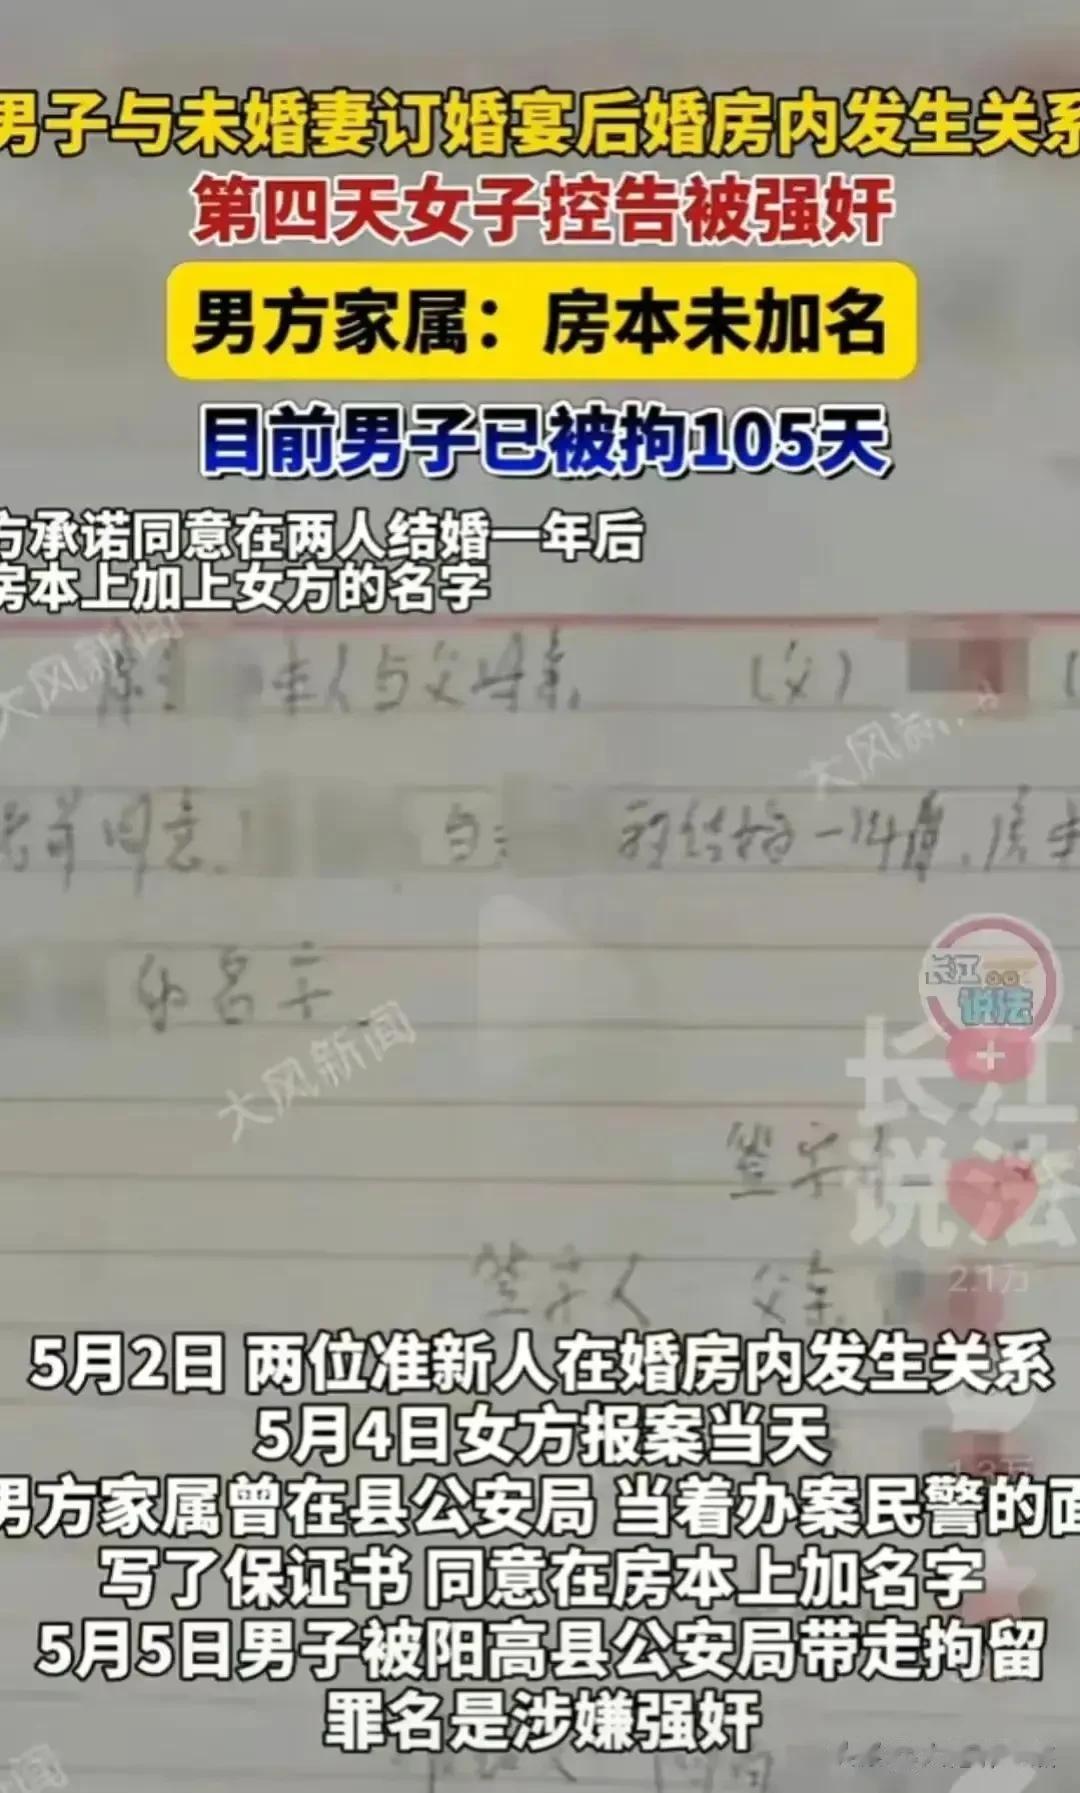 男子与未婚妻订婚宴后婚房内发生关系
第四天女子控告被强奸
男方家属：房本未加名
目前男子已被拘105天
方承诺同意在两人结婚一年后
房本上加上女方的名字
大风新闻
本人与父母亲 （父）
大风新
同意 与 结婚一年 房本
的名字
长江
说法
大风新闻
长江
说法
签字
2.1万
签字人 父亲
5月2日 两位准新人在婚房内发生关系
5月4日女方报案当天
1.3万
男方家属曾在县公安局 当着办案民警的面
写了保证书 同意在房本上加名字
5月5日男子被阳高县公安局带走拘留
罪名是涉嫌强奸
新闻